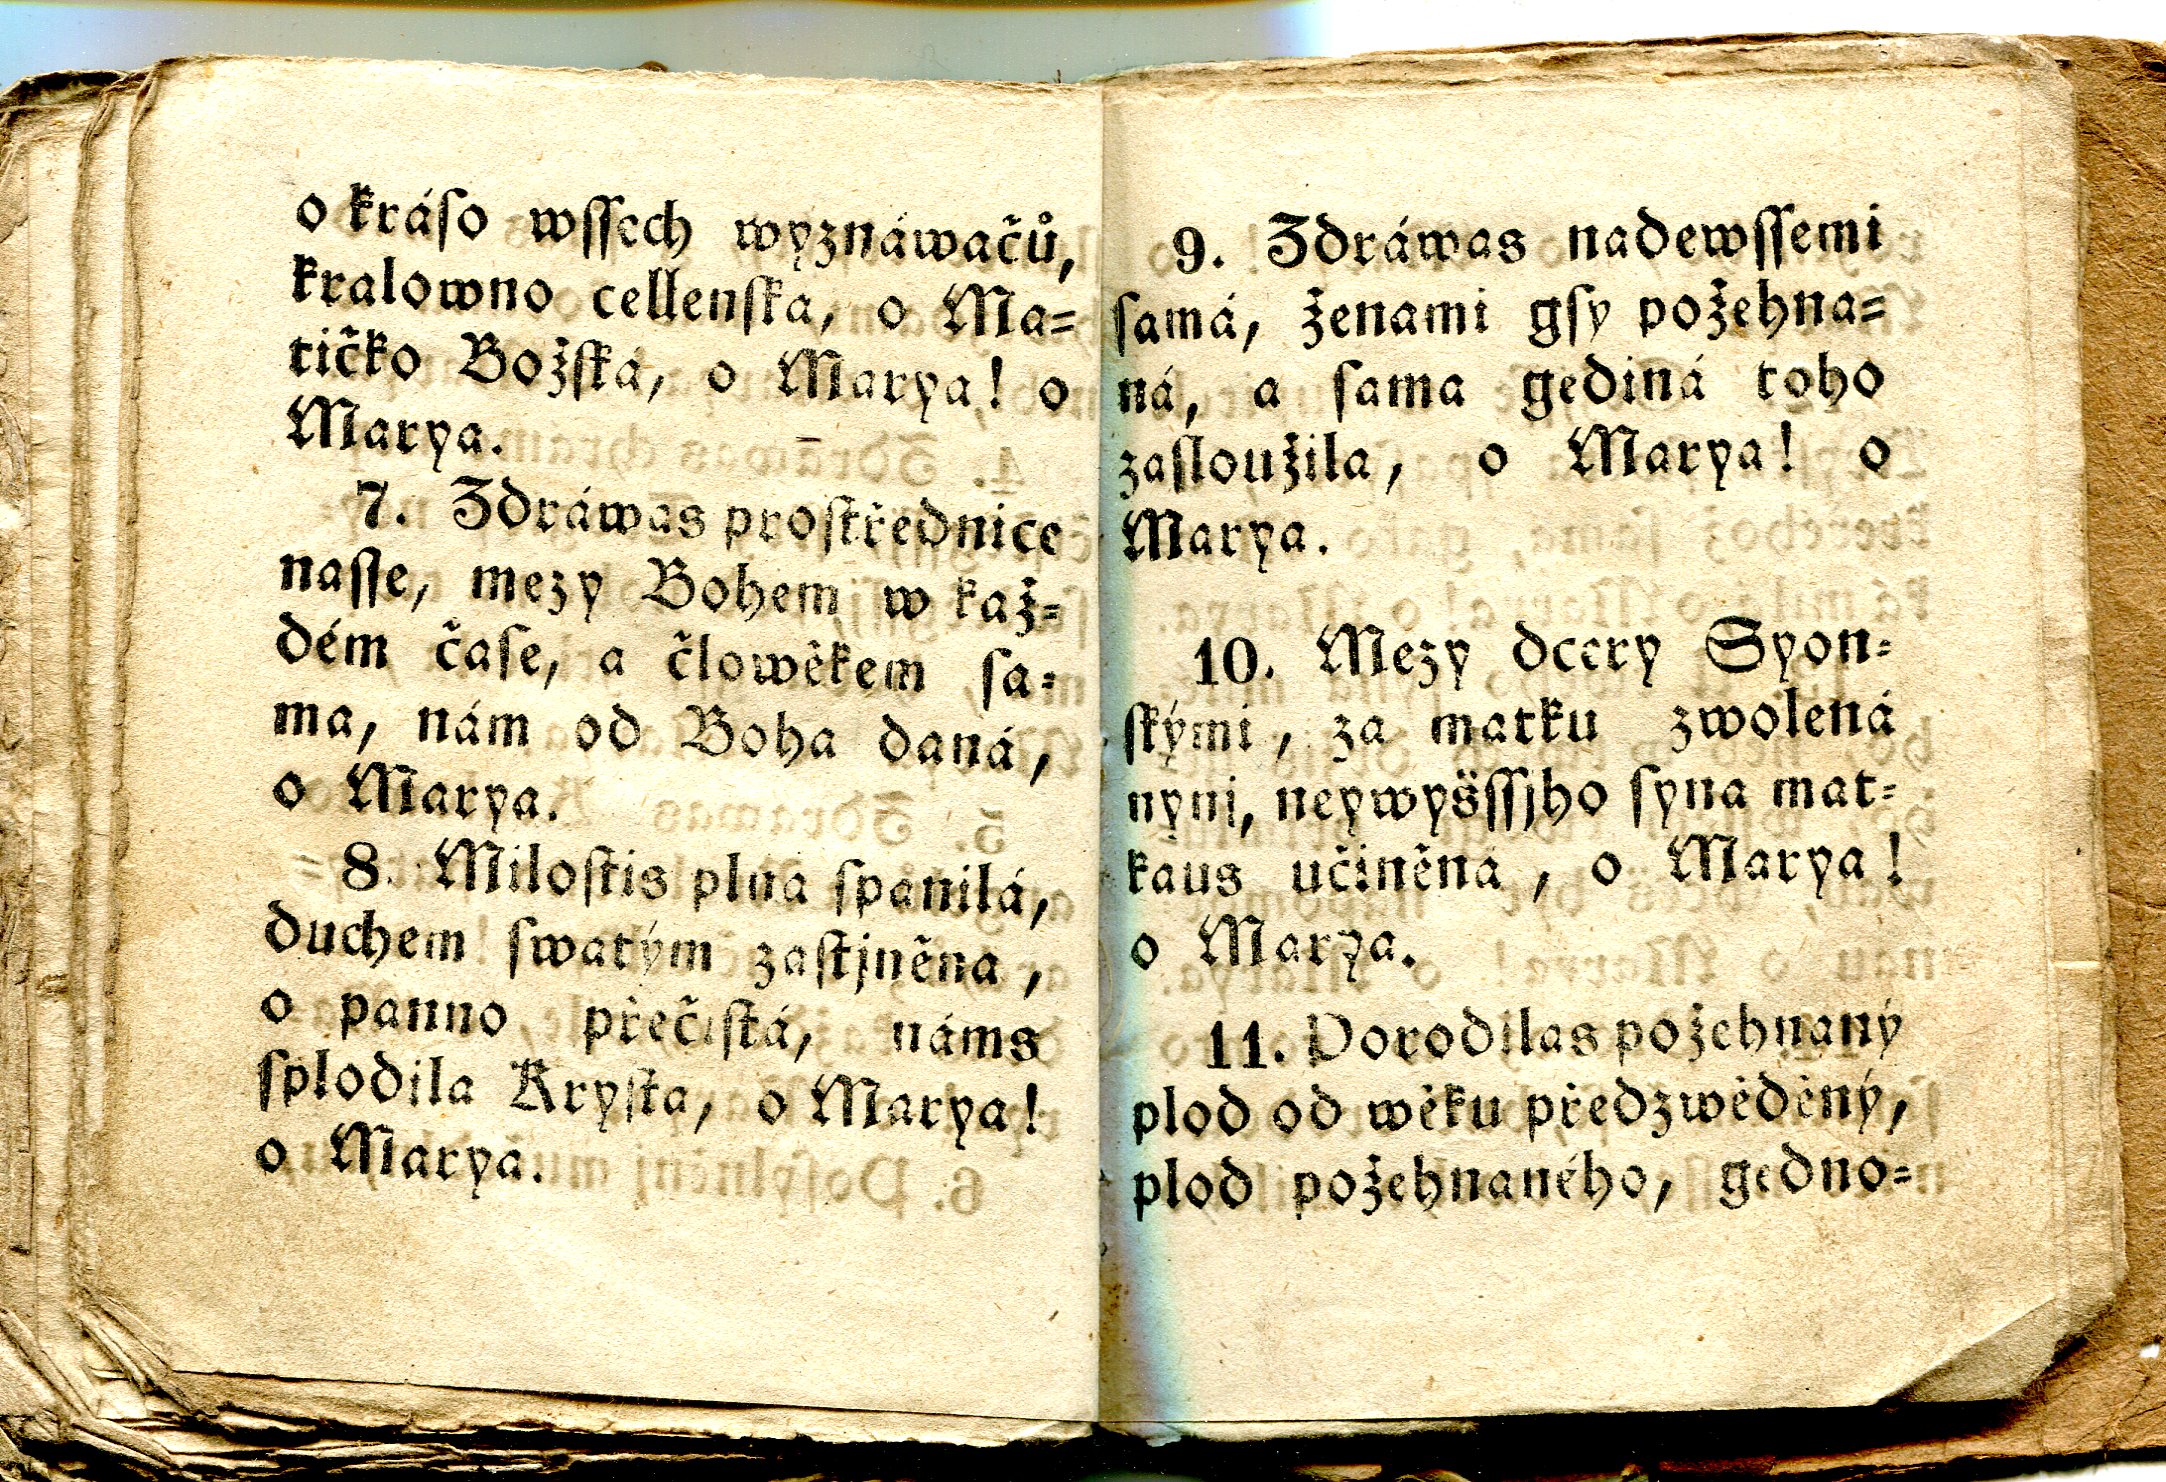 o kráſo wſſech wyznáwačů,
kralowno cellenſka, o Ma=
tičko Božſka, o Marya! o
Marya.
7. Zdráwas proſtřednice
naſſe, mezy Bohem w kaž=
dém čaſe, a člowěkem ſa=
ma, nám od Boha daná,
o Marya.
8. Miloſtis plna ſpanilá,
duchem ſwatým zaſtjněna,
o panno přečiſtá, náms
ſplodila Kryſta, o Marya!
o Marya.
9. Zdráwas nadewſſemi
ſamá, ženami gſy požehna=
ná, a ſama gediná toho
zaſloužila, o Marya! o
Marya.
10. Mezy dcery Syon=
ſkými, za matku zwolená
nynj, neywyšſſjho ſyna mat=
kaus učiněna, o Marya!
o Marya.
11. Porodilas požehnaný
plod od wěku předzwěděný,
plod požehnaného, gedno=